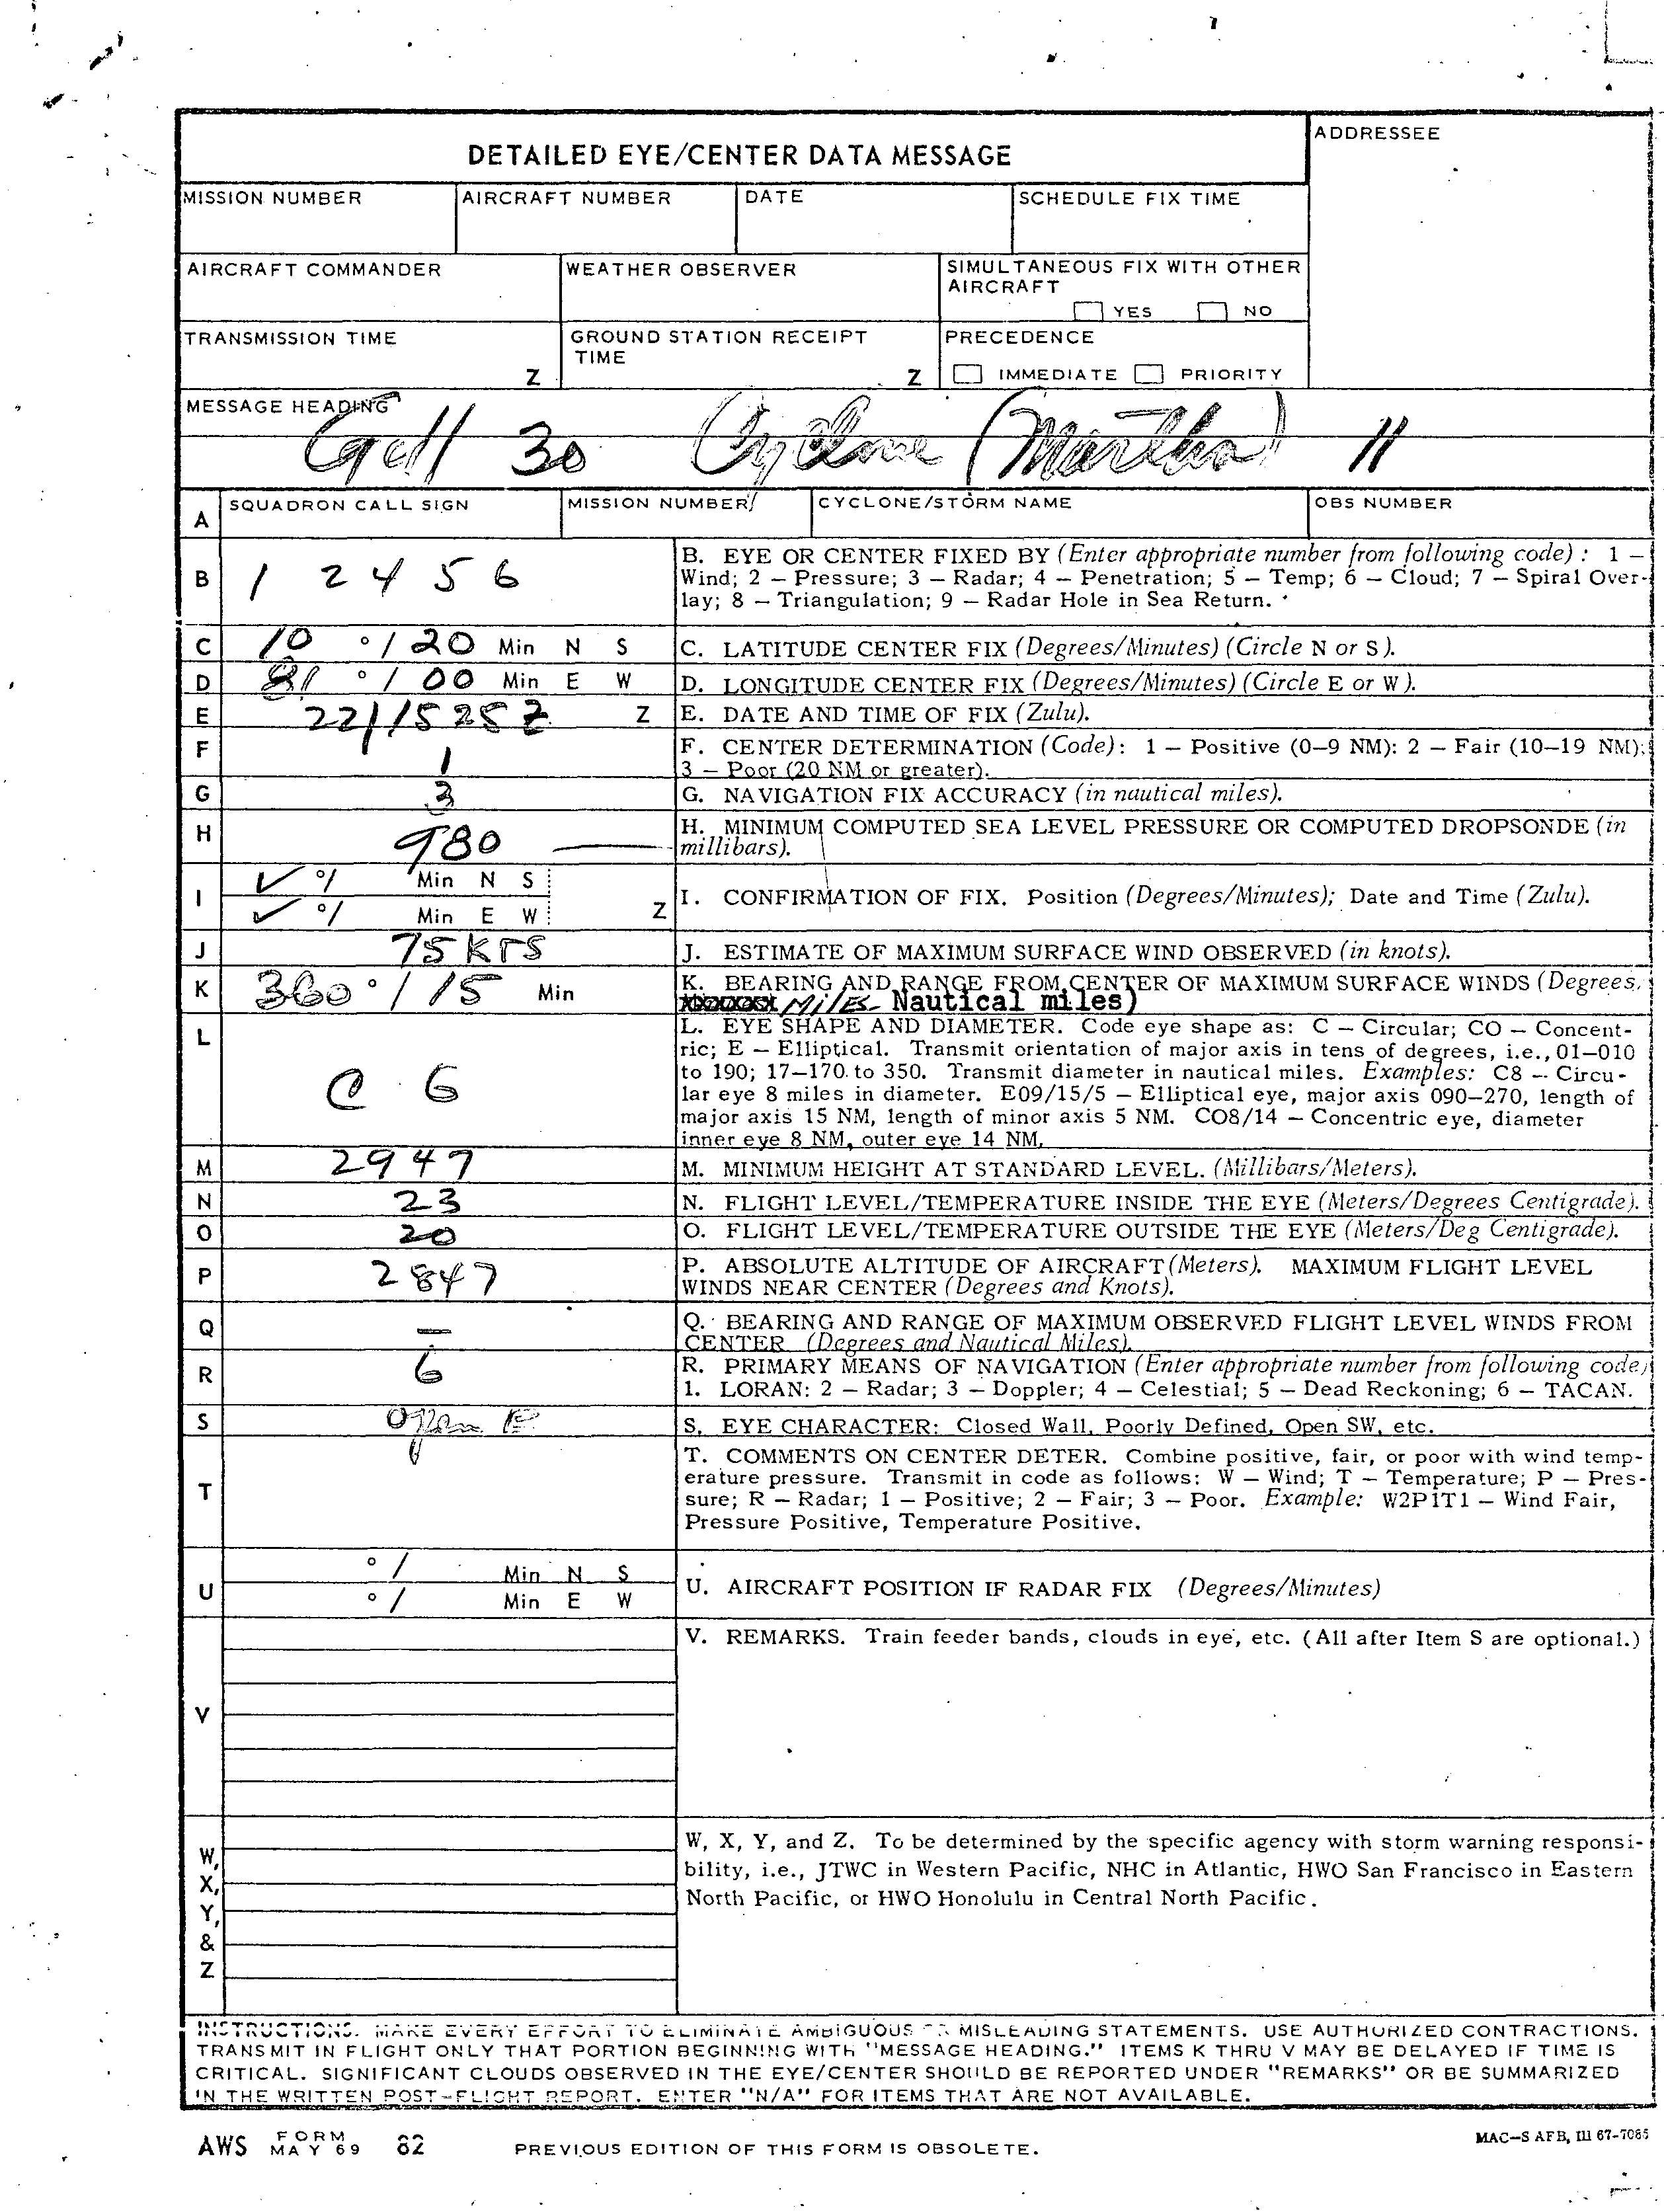 DETAILED EYE/CENTER DATA MESSAGE
ADDRESSEE
MISSION NUMBER AIRCRAFT NUMBER DATE SCHEDULE FIX TIME
AIRCRAFT COMMANDER WEATHER OBSERVER SIMULTANEOUS FIX WITH OTHER
AIRCRAFT
YES NO
TRANSMISSION TIME GROUND STATION RECEIPT PRECEDENCE
TIME
Z Z IMMEDIATE PRIORITY
MESSAGE HEADING
Gull 30 Cyclone (Martha) 11
A SQUADRON CALL SIGN MISSION NUMBER CYCLONE/STORM NAME OBS NUMBER
B 1 2 4 5 6
B. EYE OR CENTER FIXED BY (Enter appropriate number from following code) : 1 –
Wind; 2 – Pressure; 3 – Radar; 4 – Penetration; 5 – Temp; 6 – Cloud; 7 – Spiral Over-
lay; 8 – Triangulation; 9 – Radar Hole in Sea Return.
C 10 °/ 20 Min N S C. LATITUDE CENTER FIX (Degrees/Minutes) (Circle N or S).
D 81 °/ 00 Min E W D. LONGITUDE CENTER FIX (Degrees/Minutes) (Circle E or W).
E 22/1525Z Z E. DATE AND TIME OF FIX (Zulu).
F 1 F. CENTER DETERMINATION (Code): 1 – Positive (0–9 NM): 2 – Fair (10–19 NM);
3 – Poor (20 NM or greater).
G 3 G. NAVIGATION FIX ACCURACY (in nautical miles).
H 980 H. MINIMUM COMPUTED SEA LEVEL PRESSURE OR COMPUTED DROPSONDE (in
millibars).
I ✓ °/ Min N S
✓ °/ Min E W Z I. CONFIRMATION OF FIX. Position (Degrees/Minutes); Date and Time (Zulu).
J 75 KTS J. ESTIMATE OF MAXIMUM SURFACE WIND OBSERVED (in knots).
K 360 °/ 15 Min K. BEARING AND RANGE FROM CENTER OF MAXIMUM SURFACE WINDS (Degrees,
Miles- Nautical miles)
L C 6
L. EYE SHAPE AND DIAMETER. Code eye shape as: C – Circular; CO – Concent-
ric; E – Elliptical. Transmit orientation of major axis in tens of degrees, i.e., 01–010
to 190; 17–170 to 350. Transmit diameter in nautical miles. Examples: C8 – Circu-
lar eye 8 miles in diameter. E09/15/5 – Elliptical eye, major axis 090–270, length of
major axis 15 NM, length of minor axis 5 NM. CO8/14 – Concentric eye, diameter
inner eye 8 NM, outer eye 14 NM.
M 2947 M. MINIMUM HEIGHT AT STANDARD LEVEL. (Millibars/Meters).
N 23 N. FLIGHT LEVEL/TEMPERATURE INSIDE THE EYE (Meters/Degrees Centigrade).
O 20 O. FLIGHT LEVEL/TEMPERATURE OUTSIDE THE EYE (Meters/Deg Centigrade).
P 2847 P. ABSOLUTE ALTITUDE OF AIRCRAFT (Meters). MAXIMUM FLIGHT LEVEL
WINDS NEAR CENTER (Degrees and Knots).
Q – Q. BEARING AND RANGE OF MAXIMUM OBSERVED FLIGHT LEVEL WINDS FROM
CENTER (Degrees and Nautical Miles).
R 6 R. PRIMARY MEANS OF NAVIGATION (Enter appropriate number from following code)
1. LORAN: 2 – Radar; 3 – Doppler; 4 – Celestial; 5 – Dead Reckoning; 6 – TACAN.
S Open S. EYE CHARACTER: Closed Wall, Poorly Defined, Open SW, etc.
T T. COMMENTS ON CENTER DETER. Combine positive, fair, or poor with wind temp-
erature pressure. Transmit in code as follows: W – Wind; T – Temperature; P – Pres-
sure; R – Radar; 1 – Positive; 2 – Fair; 3 – Poor. Example: W2P1T1 – Wind Fair,
Pressure Positive, Temperature Positive.
U °/ Min N S
°/ Min E W U. AIRCRAFT POSITION IF RADAR FIX (Degrees/Minutes)
V V. REMARKS. Train feeder bands, clouds in eye, etc. (All after Item S are optional.)
W, X, Y, & Z
W, X, Y, and Z. To be determined by the specific agency with storm warning responsi-
bility, i.e., JTWC in Western Pacific, NHC in Atlantic, HWO San Francisco in Eastern
North Pacific, or HWO Honolulu in Central North Pacific.
INSTRUCTIONS. MAKE EVERY EFFORT TO ELIMINATE AMBIGUOUS OR MISLEADING STATEMENTS. USE AUTHORIZED CONTRACTIONS.
TRANSMIT IN FLIGHT ONLY THAT PORTION BEGINNING WITH "MESSAGE HEADING." ITEMS K THRU V MAY BE DELAYED IF TIME IS
CRITICAL. SIGNIFICANT CLOUDS OBSERVED IN THE EYE/CENTER SHOULD BE REPORTED UNDER "REMARKS" OR BE SUMMARIZED
IN THE WRITTEN POST-FLIGHT REPORT. ENTER "N/A" FOR ITEMS THAT ARE NOT AVAILABLE.
AWS FORM MAY 69 82 PREVIOUS EDITION OF THIS FORM IS OBSOLETE.
MAC–S AFB, Ill 67-7085